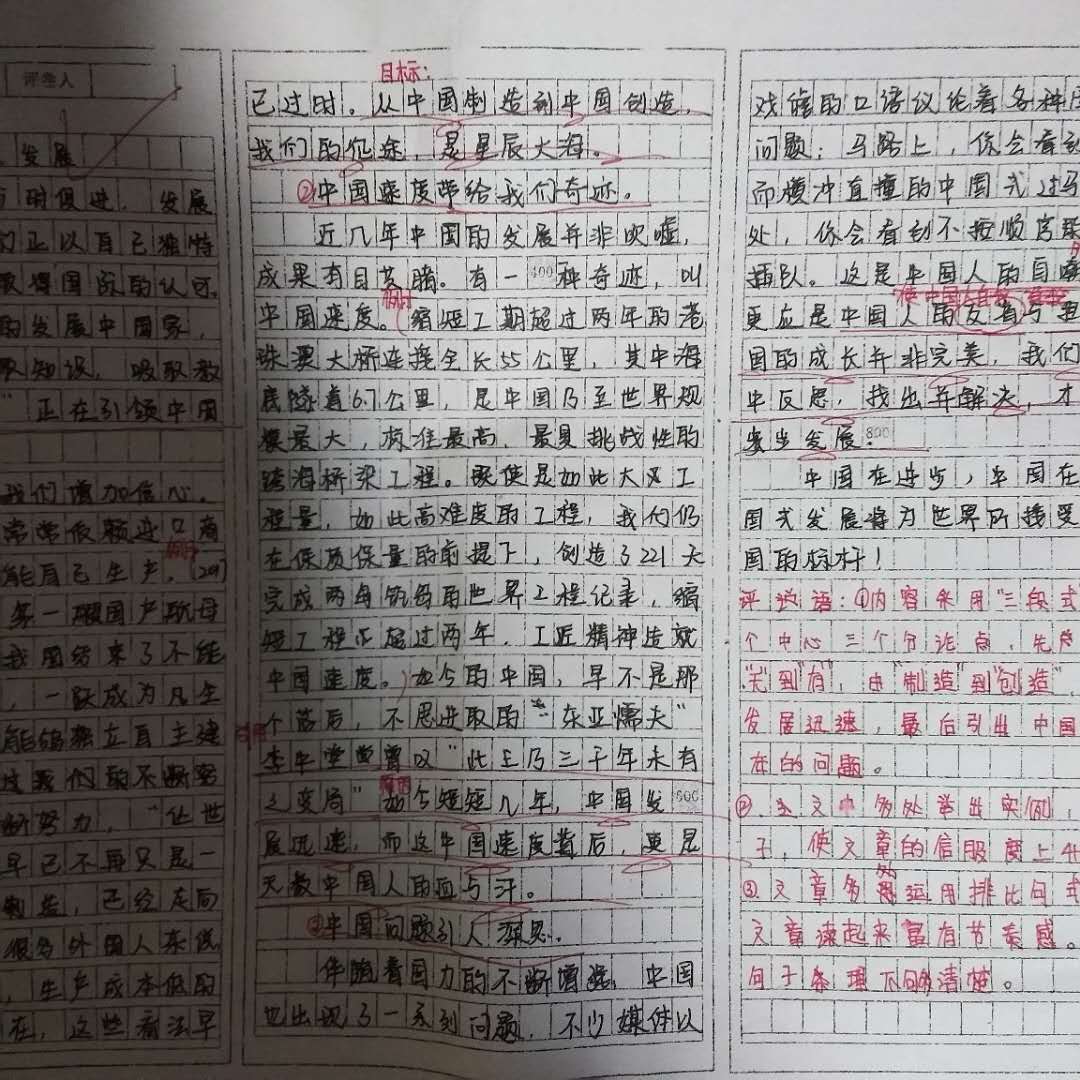 评卷人
发展
与时俱进,发展
们正以自己独特
取得国际的认可。
的发展中国家,
取知识,吸取教
正在引领中国
我们增加信心。
常常依赖进口,有
能自己生产。(2017
第一艘国产航母
我国结束了不能
,一跃成为凡生
能够独立自主建
过我们的不断
断努力,“让世
早已不再只是一
制造,已经走向
很多外国人来说
,生产成本低的
在,这些看法早
目标:
已过时。从中国制造到中国创造,
我们的征途,是星辰大海。
②中国速度带给我们奇迹。
近几年中国的发展并非吹嘘,
成果有目共睹。有一种奇迹,叫
400
例子
中国速度。(缩短工期超过两年的港
珠澳大桥连接全长55公里,其中海
底隧道6.7公里,是中国乃至世界规
模最大,标准最高,最具挑战性的
跨海桥梁工程。既使是如此大的工
程量,如此高难度的工程,我们仍
在保质保量的前提下,创造了221天
完成两岛筑岛的世界工程纪录,缩
短工程还超过两年,工匠精神造就
中国速度。)如今的中国,早不是那
个落后,不思进取的“东亚懦夫”
李中堂曾叹“此上乃三千年未有
之变局”如今短短几年,中国发
600
展迅速,而这中国速度背后,更是
无数中国人的血与汗。
③中国问题引人深思。
伴随着国力的不断增强,中国
也出现了一系列问题,不少媒体以
戏谑的口语议论着各种
问题:马路上,你会看到
而横冲直撞的中国式过马
处,你会看到不按顺序
插队。这是中国人的自嘲
更应是中国人的反省与
国的成长并非完美,我们
中反思,找出并解决,才
稳步发展。
800
中国在进步,中国在
国式发展将为世界所接受
国的标杆!
评语:①内容采用“三段式
个中心三个分论点,先
“无”到“有”,由“制造”到“创造”,
发展迅速,最后引出中国
在的问题。
②.全文中多处举出实例,
子,使文章的信服度上升
③.文章多处运用排比句式
文章读起来富有节奏感。
句子条理不够清楚。